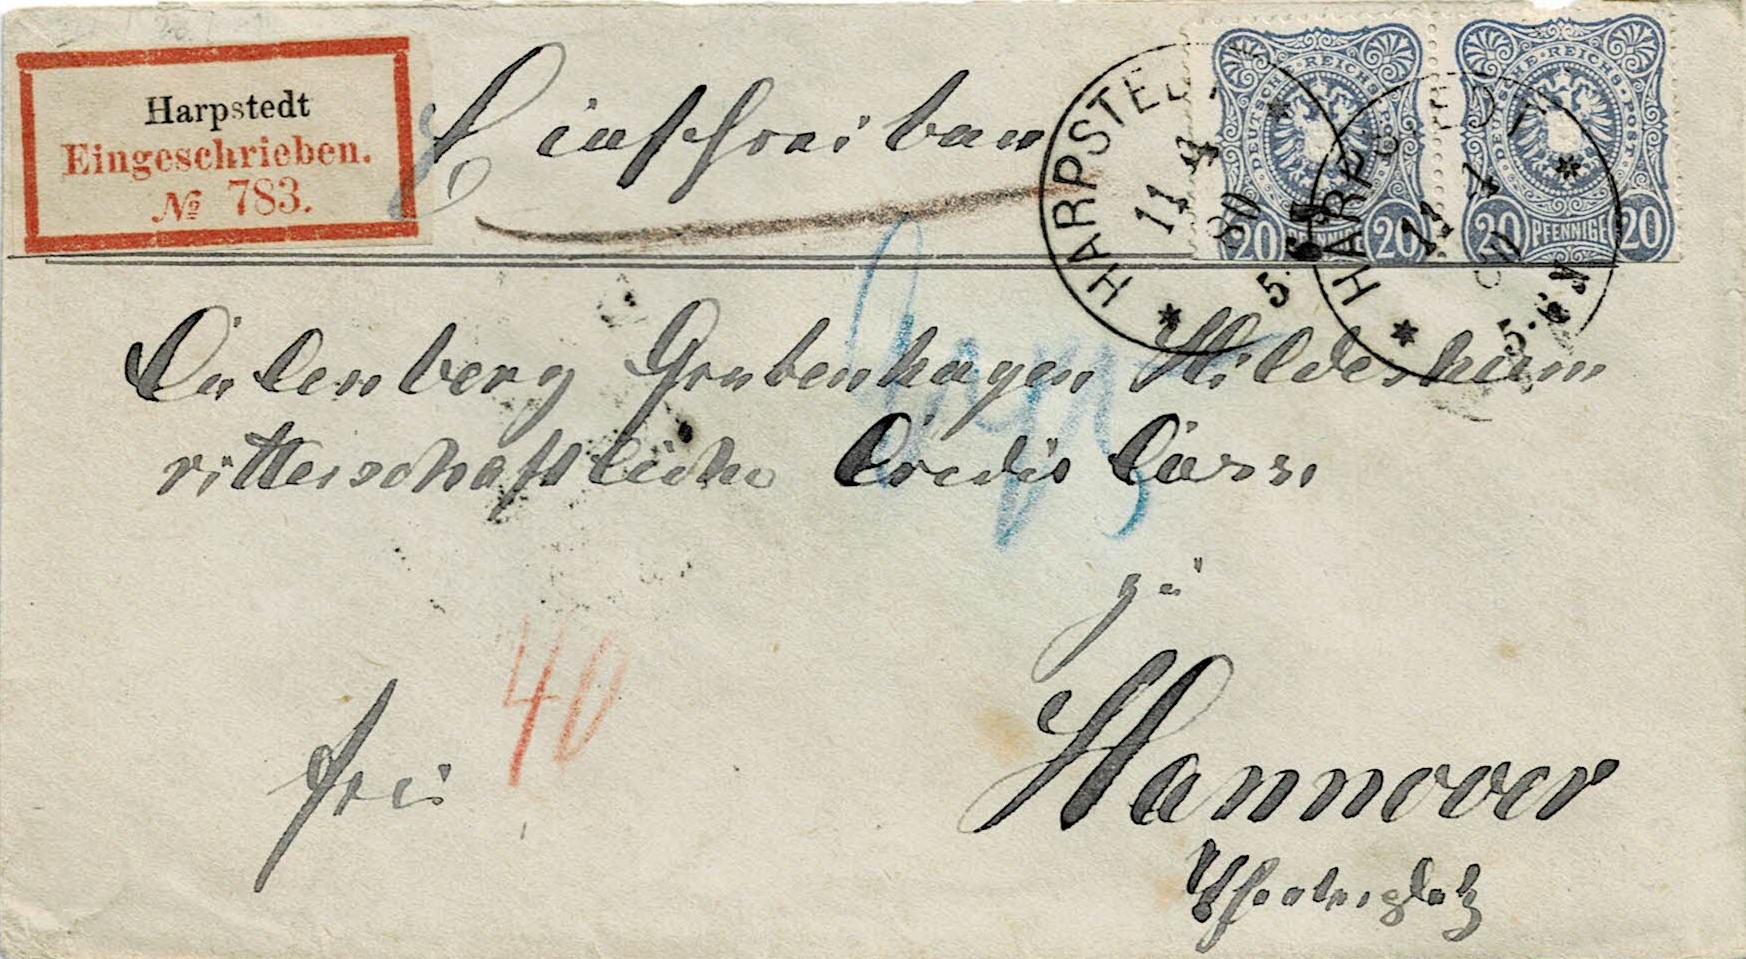 Harpstedt
Eingeschrieben.
№ 783.
Einschreiben
DEUTSCHE·REICHS-POST
20 PFENNIGE 20
DEUTSCHE·REICHS-POST
20 PFENNIGE 20
HARPSTEDT
11 4
80
5-6N
HARPSTEDT
11 4
80
5-6N
Calenberg Grubenhagen Hildesheim
ritterschaftliche Credit Casse
zu
40
frei
Hannover
Theaterplatz